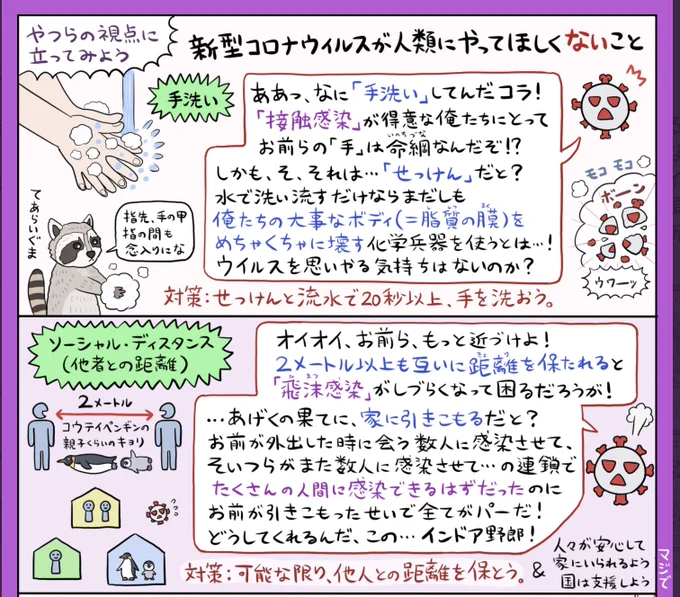 やつらの視点に
立ってみよう
新型コロナウイルスが人類にやってほしくないこと
手洗い
ああっ、なに「手洗い」してんだコラ!
「接触感染」が得意な俺たちにとって
お前らの「手」は命綱なんだぞ!?
いのちづな
しかも、そ、それは…「せっけん」だと?
水で洗い流すだけならまだしも
俺たちの大事なボディ(=脂質の膜)を
ししつ まく
めちゃくちゃに壊す化学兵器を使うとは…!
ウイルスを思いやる気持ちはないのか?
てあらいぐま
指先、手の甲
指の間も
念入りにな
モコモコ
ボーン
ウワーッ
対策:せっけんと流水で20秒以上、手を洗おう。
ソーシャル・ディスタンス
(他者との距離)
オイオイ、お前ら、もっと近づけよ!
2メートル以上も互いに距離を保たれると
きょり
「飛沫感染」がしづらくなって困るだろうが!
ひまつ
…あげくの果てに、家に引きこもるだと?
お前が外出した時に会う数人に感染させて、
そいつらがまた数人に感染させて…の連鎖で
たくさんの人間に感染できるはずだったのに
お前が引きこもったせいで全てがパーだ!
どうしてくれるんだ、この…インドア野郎!
2メートル
コウテイペンギンの
親子くらいのキョリ
対策:可能な限り、他人との距離を保とう。
&
人々が安心して
家にいられるよう
国は支援しよう
マジで